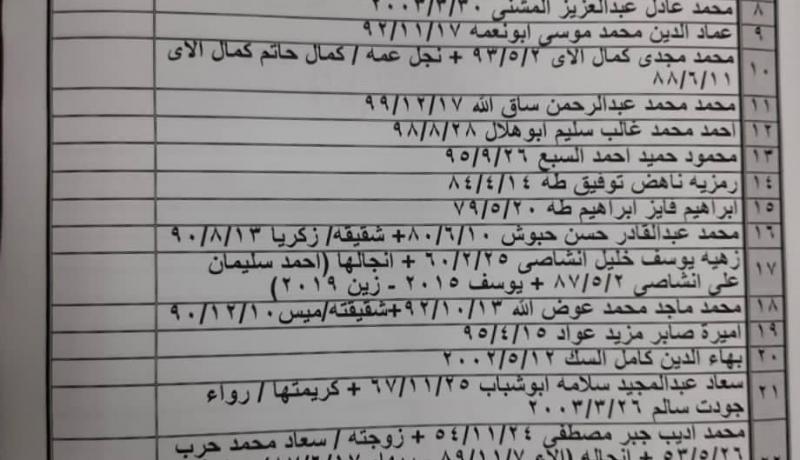 ٨ محمد عادل عبدالعزيز المشني ٢٠٠٣/٣/٣٠
٩ عماد الدين محمد موسى ابونعمه ٩٢/١١/١٧
١٠ محمد مجدى كمال الاى ٩٣/٥/٢ + نجل عمه / كمال حاتم كمال الاى
٨٨/٦/١١
١١ محمد محمد عبدالرحمن ساق الله ٩٩/١٢/١٧
١٢ احمد محمد غالب سليم ابوهلال ٩٨/٨/٢٨
١٣ محمود حميد احمد السبع ٩٥/٩/٢٦
١٤ رمزيه ناهض توفيق طه ٨٤/٤/١٤
١٥ ابراهيم فايز ابراهيم طه ٧٩/٥/٢٠
١٦ محمد عبدالقادر حسن حبوش ٨٠/٦/١٠+ شقيقه/ زكريا ٩٠/٨/١٣
١٧ زهيه يوسف خليل انشاصى ٦٠/٢/٢٥ + انجالها (احمد سليمان
على انشاصى ٨٧/٥/٢ + يوسف ٢٠١٥ - زين ٢٠١٩)
١٨ محمد ماجد محمد عوض الله ٩٢/١٠/١٣+شقيقته/ميس ٩٠/١٢/١٠
١٩ اميرة صابر مزيد عواد ٩٥/٤/١٥
٢٠ بهاء الدين كامل السك ٢٠٠٢/٥/١٢
٢١ سعاد عبدالمجيد سلامه ابوشباب ٦٧/١١/٢٥ + كريمتها / رواء
جودت سالم ٢٠٠٣/٣/٢٦
محمد اديب جبر مصطفى ٥٤/١١/٢٤ + زوجته / سعاد محمد حرب
٥٣/٥/٢٦ + انجاله (الاء ٨٩/١١/٧